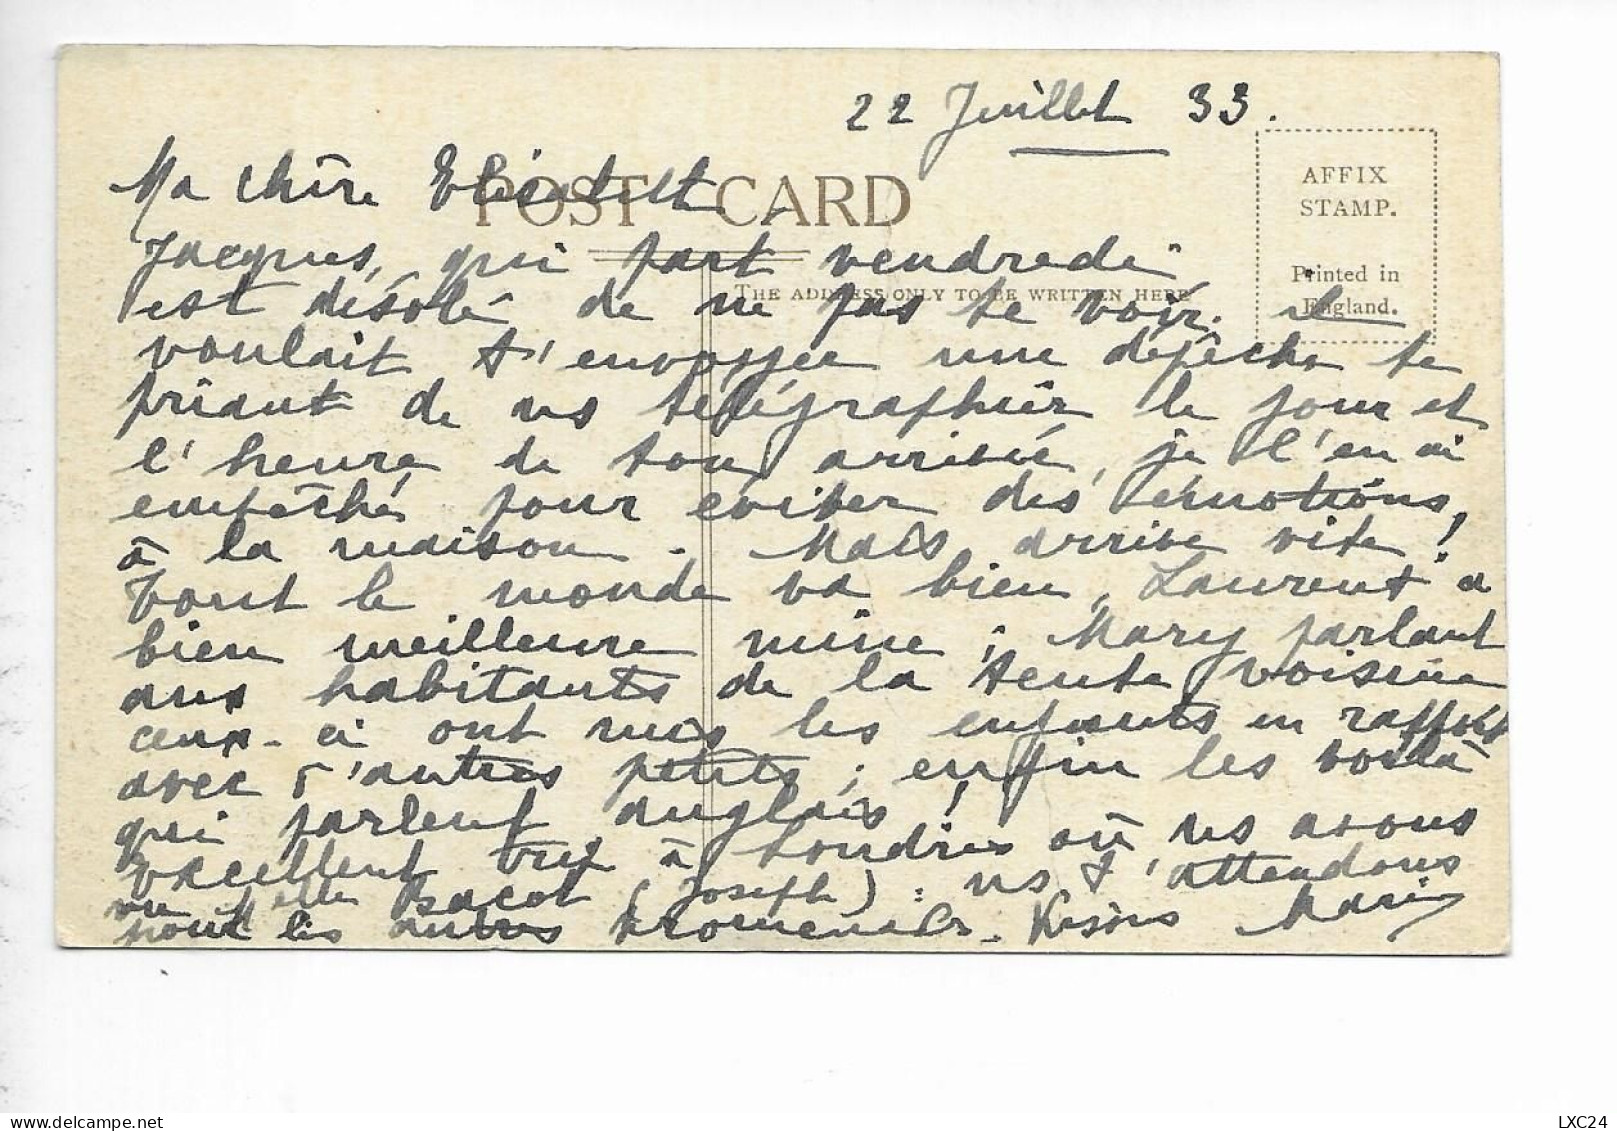 22 Juillet 33.
Ma chère Elisabeth.
POST CARD
AFFIX
STAMP.
Printed in
England.
THE ADDRESS ONLY TO BE WRITTEN HERE
Jacques, qui part vendredi
est désolé de ne pas te voir. il
voulait t'envoyer une dépêche te
priant de ns télégraphier le jour et
l'heure de ton arrivée, je l'en ai
empêché pour éviter des émotions,
à la maison. Mais arrive vite!
Tout le monde va bien, Laurent a
bien meilleure mine; Mary parlant
aux habitants de la tente voisine
ceux-ci ont mis les enfants en rapport
avec d'autres petits; enfin les voilà
qui parlent anglais!
Excellent à Londres où ns avons
vu Melle Bacot (Joseph): ns t'attendons
pour les autres promenades. Marie
LXC24